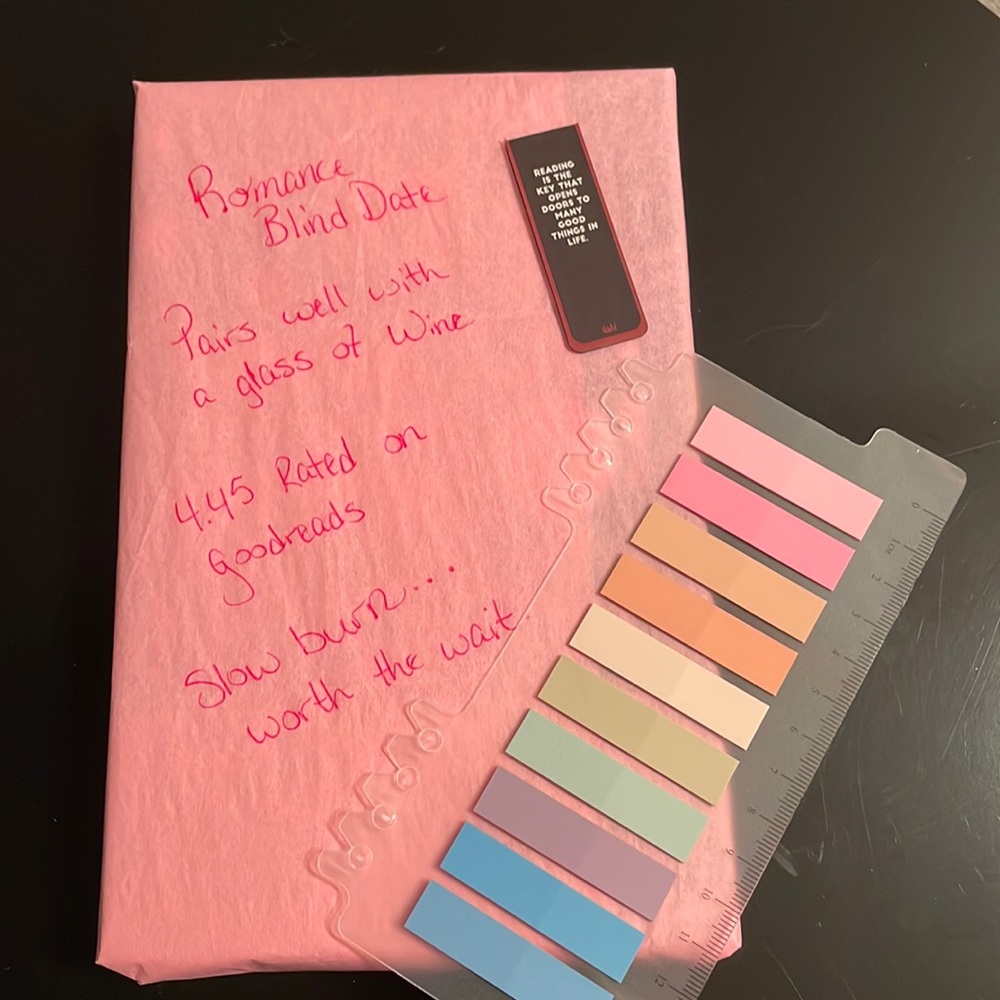 Romance
Blind Date
Pairs well with
a glass of Wine
4.45 Rated on
goodreads
Slow burn...
worth the wait.
READING
IS THE
KEY THAT
OPENS
DOORS TO
MANY
GOOD
THINGS IN
LIFE.
0
1cm
2
3
4
5
6
7
8
9
10
11
12